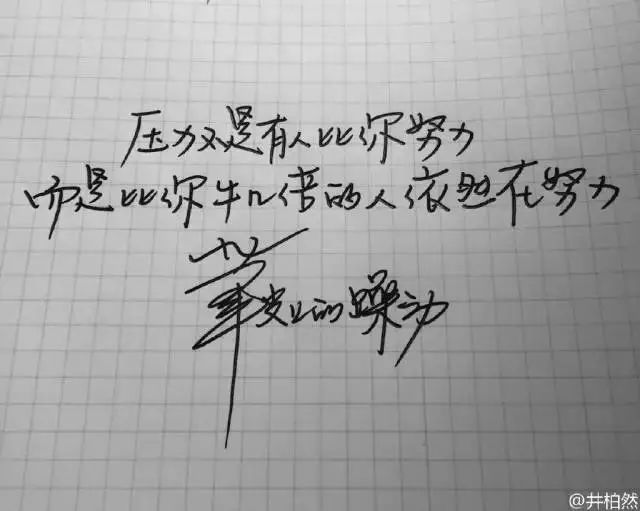 压力不是有人比你努力
而是比你牛几倍的人依然在努力
上的躁动
@井柏然